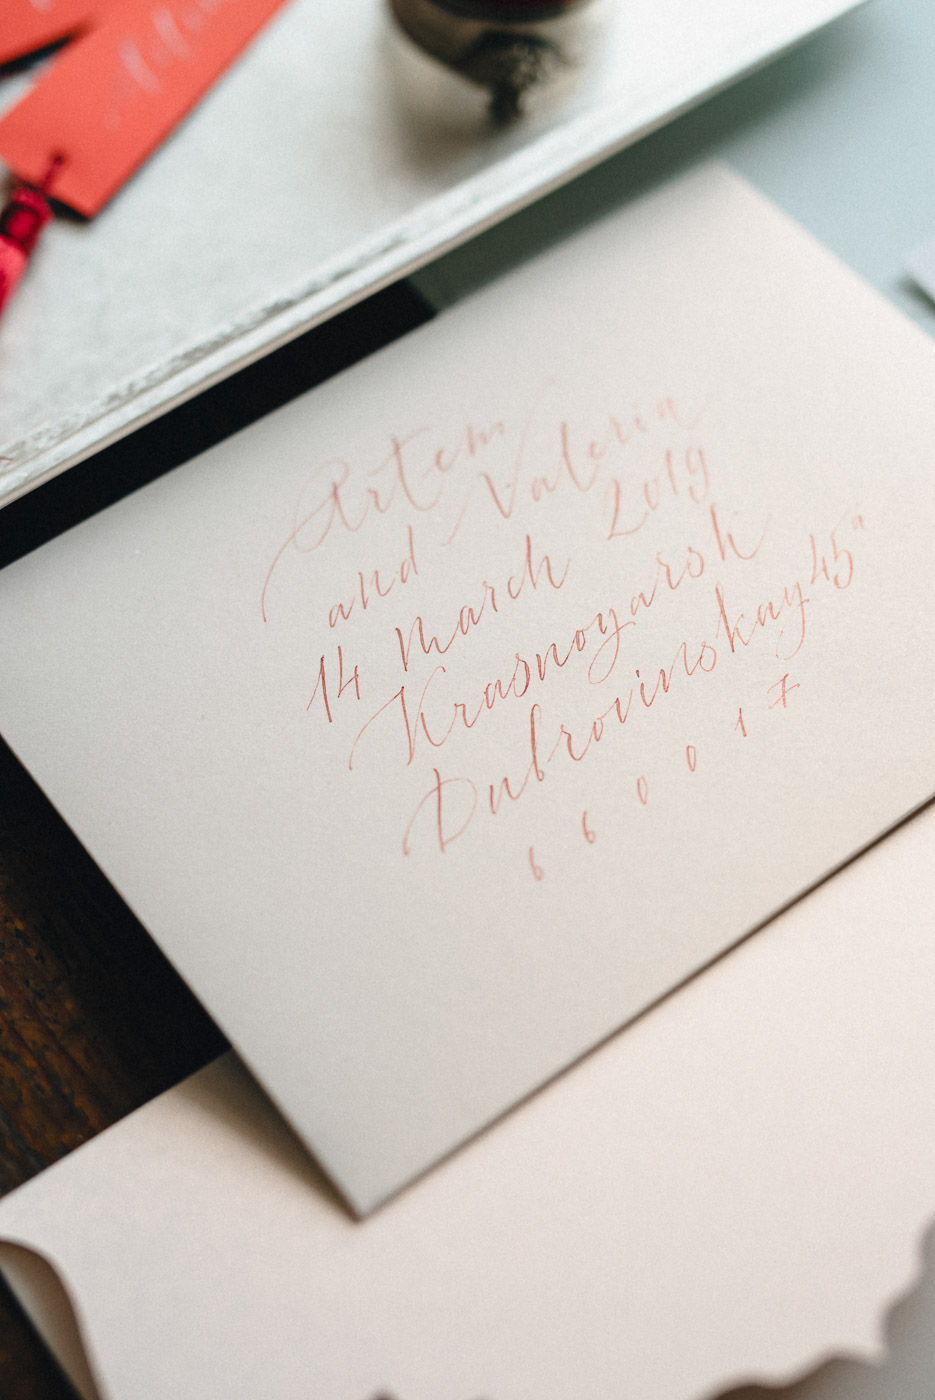 Artem
and Valeria
14 March 2019
Krasnoyarsk
Dubrovinskay 45"
660017